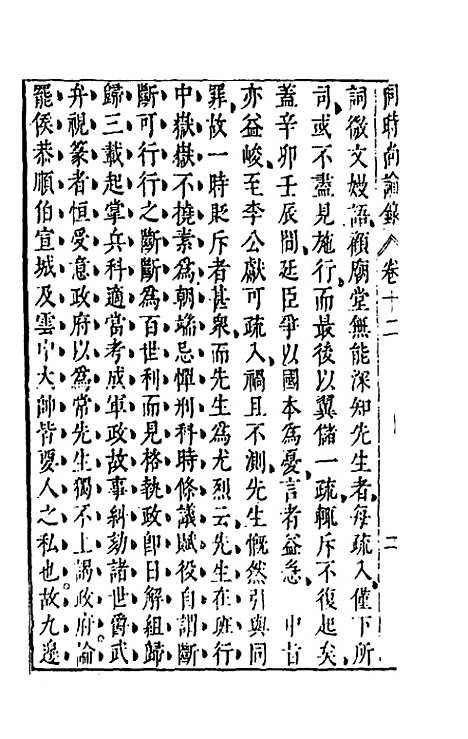 同時尚論錄 卷十二 二
詞微文嫂語顧廟堂無能深知先生者每疏入僅下所
司或不盡見施行而最後以翼儲一疏輒斥不復起矣
蓋辛卯壬辰間廷臣爭以國本為憂言者益急 中旨
亦益峻至李公獻可疏入禍且不測先生慨然引與同
罪故一時貶斥者甚衆而先生為尤烈云先生在班行
中嶽嶽不撓素為朝端忌憚刑科時條議賦役自謂斷
斷可行行之斷斷為百世利而見格執政即日解組歸
歸三載起掌兵科適當考成軍政故事糾劾諸世爵武
弁視篆者恒受意政府以為常先生獨不上謁政府論
罷侯恭順伯宣城及雲中大帥皆要人之私也故九邊